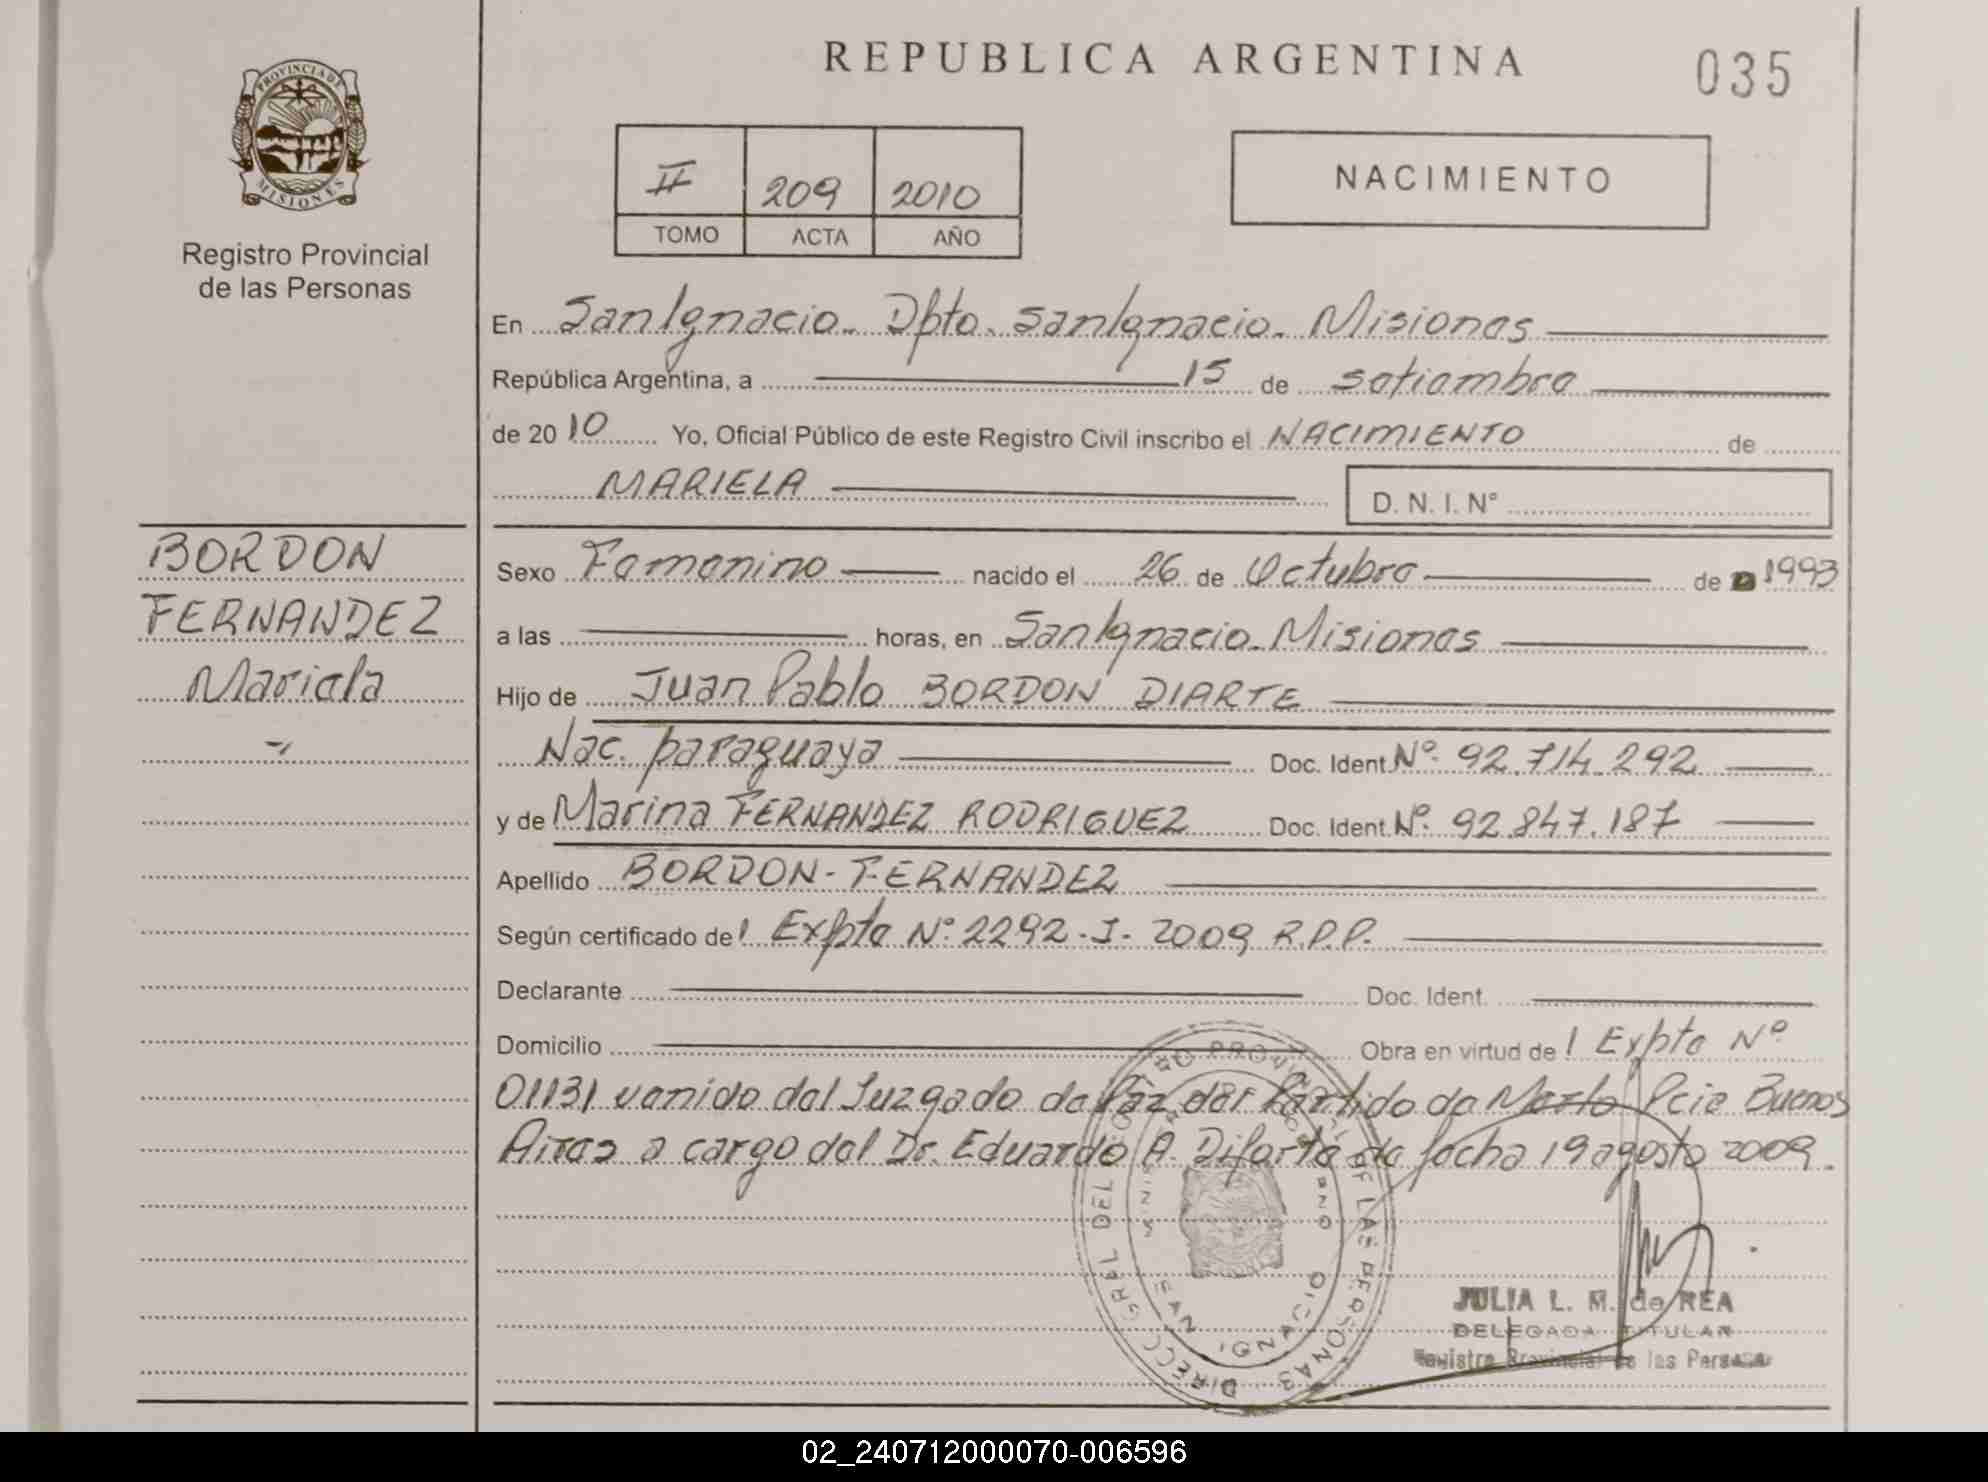 REPUBLICA ARGENTINA
035
PROVINCIA DE
MISIONES
Registro Provincial
de las Personas
II 209 2010
TOMO ACTA AÑO
NACIMIENTO
En San Ignacio. Dpto. San Ignacio. Misiones
República Argentina, a 15 de setiembre
de 2010 Yo, Oficial Público de este Registro Civil inscribo el NACIMIENTO de
MARIELA
D. N. I. N°
BORDON
FERNANDEZ
Mariela
Sexo Femenino nacido el 26 de Octubre de 1993
a las horas, en San Ignacio. Misiones
Hijo de Juan Pablo BORDON DIARTE
Nac. paraguaya Doc. Ident. Nº. 92.714.292
y de Marina FERNANDEZ RODRIGUEZ Doc. Ident. Nº. 92.847.187
Apellido BORDON-FERNANDEZ
Según certificado de Expte Nº 2292-J-2009 R.P.P.
Declarante Doc. Ident.
Domicilio Obra en virtud de Expte Nº
01131 venido del Juzgado de Paz del Partido de Merlo Pcia Buenos
Aires a cargo del Dr. Eduardo A. de fecha 19 agosto 2009.
DIRECC GRAL DEL REGISTRO PROVINCIAL DE LAS PERSONAS
SAN IGNACIO
JULIA L. M. de REA
DELEGADA TITULAR
Registro Provincial de las Personas
02_240712000070-006596